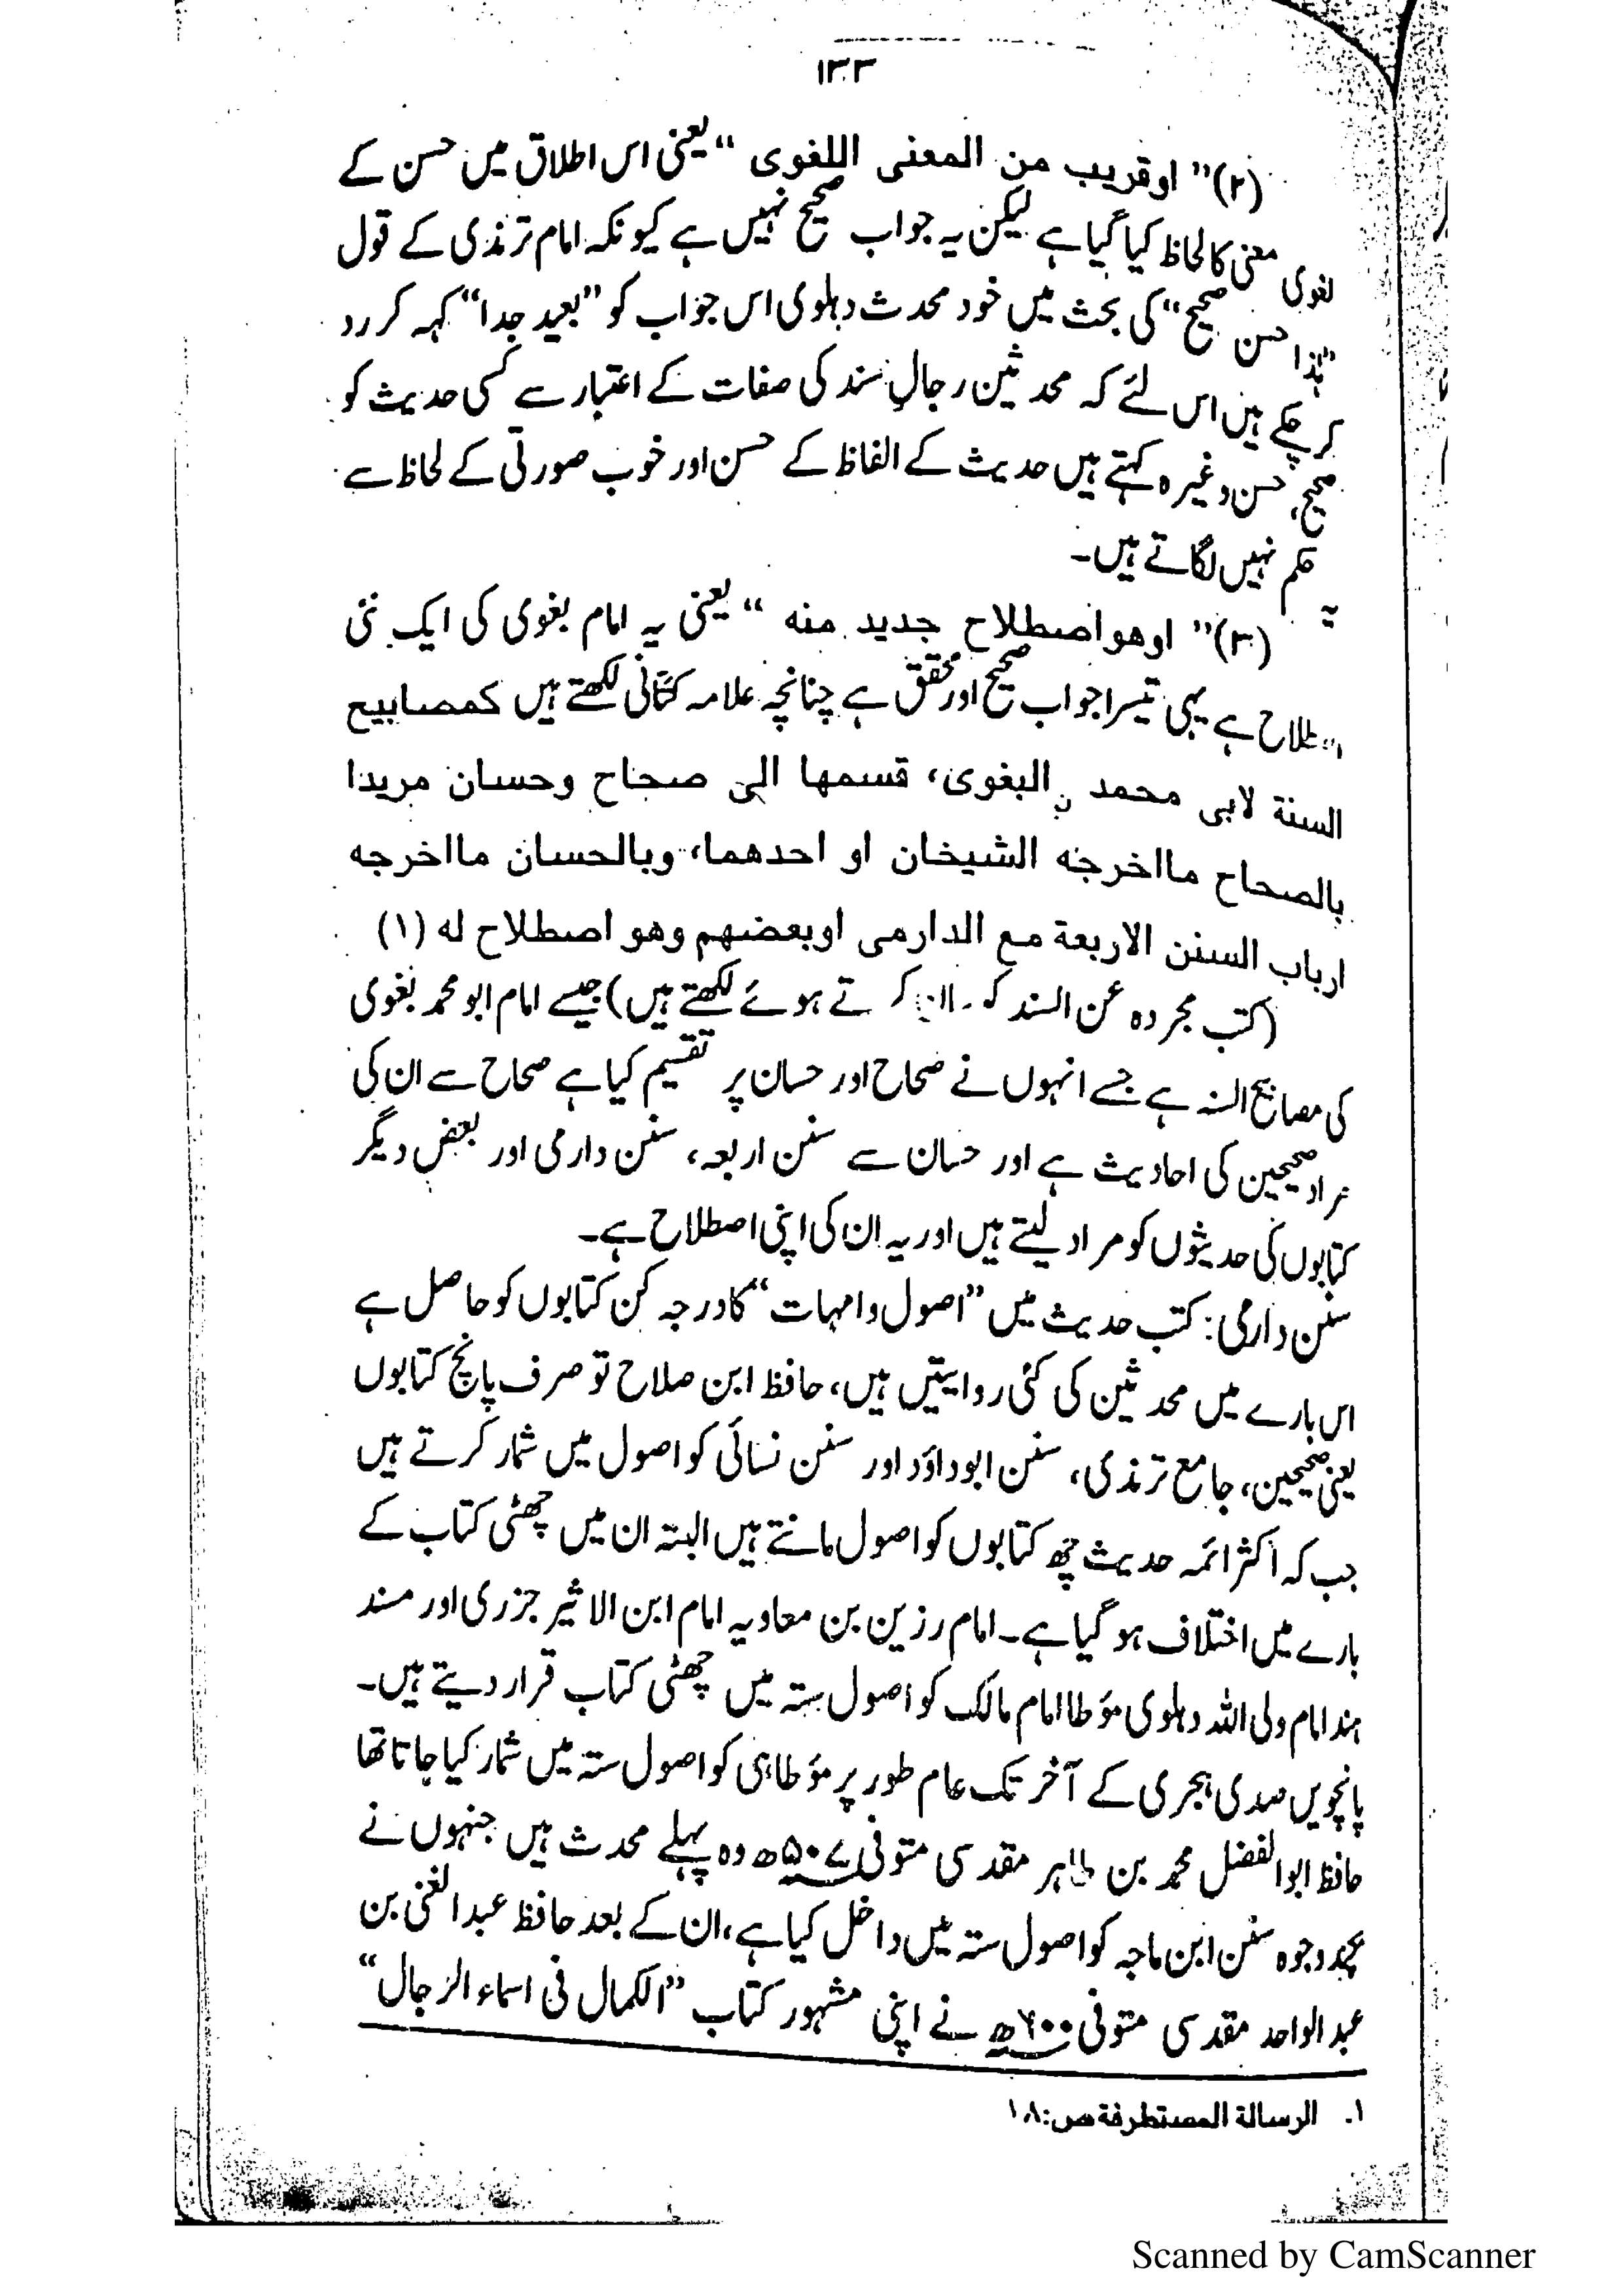 ۱۳۳
(۲)” اوقریب من المعنی اللغوی “ یعنی اس اطلاق میں حسن کے
لغوی معنی کا لحاظ کیا گیا ہے لیکن یہ جواب صحیح نہیں ہے کیونکہ امام ترمذی کے قول
”ہذا حسن صحیح“ کی بحث میں خود محدث دہلوی اس جواب کو ”بعید جدا“ کہہ کر رد
کر چکے ہیں اس لئے کہ محدثین رجالِ سند کی صفات کے اعتبار سے کسی حدیث کو
صحیح، حسن وغیرہ کہتے ہیں حدیث کے الفاظ کے حسن اور خوب صورتی کے لحاظ سے
یہ حکم نہیں لگاتے ہیں۔
(۳)” اوھواصطلاح جدید منه “ یعنی یہ امام بغوی کی ایک نئی
اصطلاح ہے یہی تیسرا جواب صحیح اور محقق ہے چنانچہ علامہ کتانی لکھتے ہیں کمصابیح
السنة لابی محمد ن البغوی، قسمها الی صحاح وحسان مریدا
بالصحاح مااخرجه الشیخان او احدهما، وبالحسان مااخرجه
ارباب السنن الاربعة مع الدارمی اوبعضهم وهو اصطلاح له (۱)
(کتب مجردہ عن السند کو کرتے ہوئے لکھتے ہیں) جیسے امام ابو محمد بغوی
کی مصابیح السنہ ہے جسے انہوں نے صحاح اور حسان پر تقسیم کیا ہے صحاح سے ان کی
مراد صحیحین کی احادیث ہے اور حسان سے سنن اربعہ، سنن دارمی اور بعض دیگر
کتابوں کی حدیثوں کو مراد لیتے ہیں اور یہ ان کی اپنی اصطلاح ہے۔
سنن دارمی: کتب حدیث میں ”اصول وامہات“ کا درجہ کن کتابوں کو حاصل ہے
اس بارے میں محدثین کی کئی روایتیں ہیں، حافظ ابن صلاح تو صرف پانچ کتابوں
یعنی صحیحین، جامع ترمذی، سنن ابوداؤد اور سنن نسائی کو اصول میں شمار کرتے ہیں
جب کہ اکثر ائمہ حدیث چھ کتابوں کو اصول مانتے ہیں البتہ ان میں چھٹی کتاب کے
بارے میں اختلاف ہو گیا ہے۔ امام رزین بن معاویہ امام ابن الاثیر جزری اور مسند
ہند امام ولی اللہ دہلوی مؤطا امام مالک کو اصول ستہ میں چھٹی کتاب قرار دیتے ہیں۔
پانچویں صدی ہجری کے آخر تک عام طور پر مؤطا ہی کو اصول ستہ میں شمار کیا جاتا تھا
حافظ ابوالفضل محمد بن طاہر مقدسی متوفی ۵۰۷ھ وہ پہلے محدث ہیں جنہوں نے
بچند وجوہ سنن ابن ماجہ کو اصول ستہ میں داخل کیا ہے، ان کے بعد حافظ عبدالغنی بن
عبدالواحد مقدسی متوفی ۶۰۰ھ نے اپنی مشہور کتاب ”الکمال فی اسماء الرجال“
۱۔ الرسالة المستطرفة ص:۱۸
Scanned by CamScanner